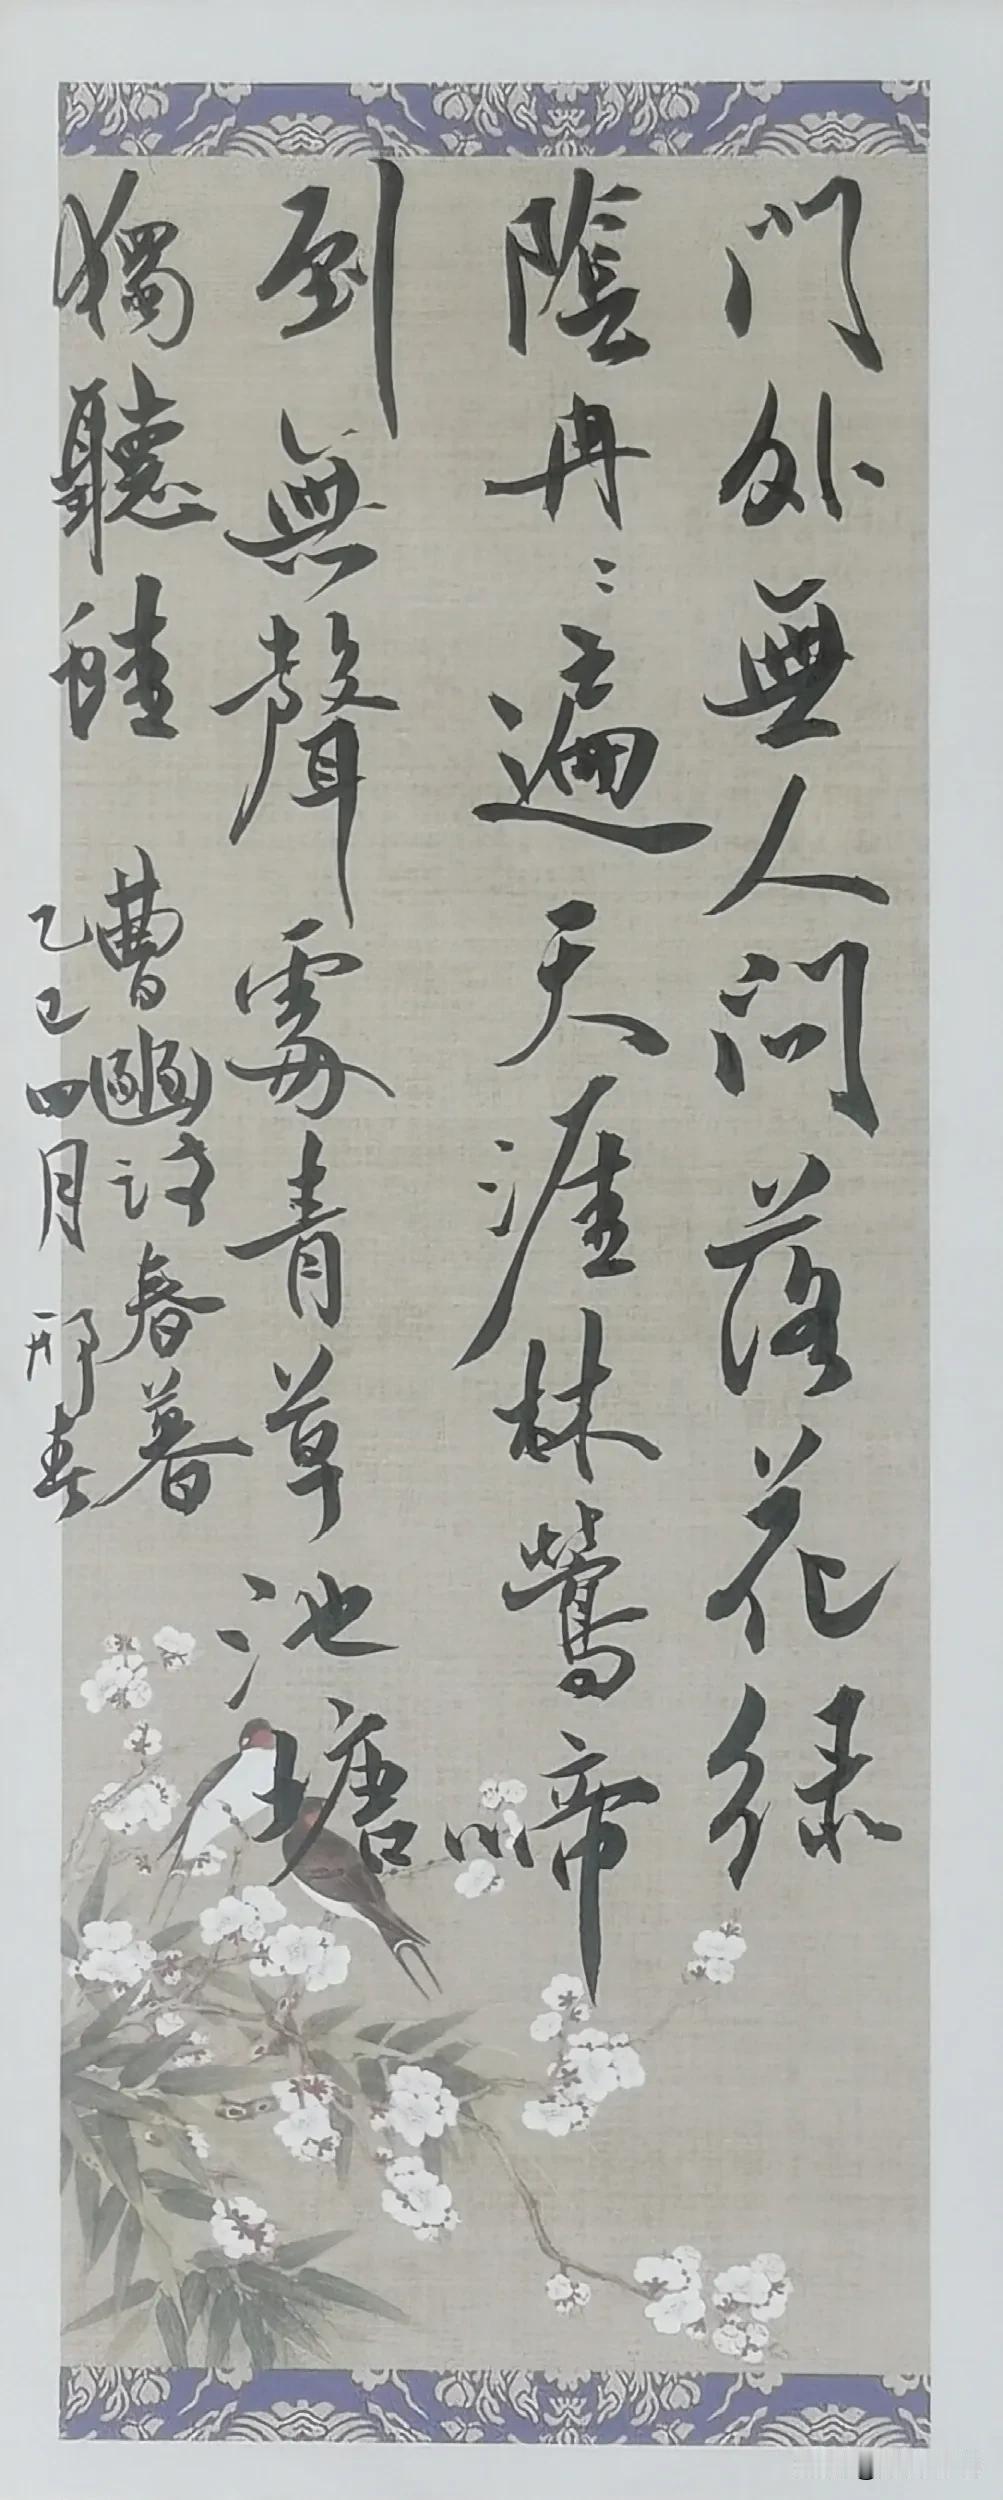 门外無人问落花绿
隂冉〻遍天涯林鶯啼
到無聲處青草池塘
獨聽蛙
曹豳诗春暮
乙巳四月邢春